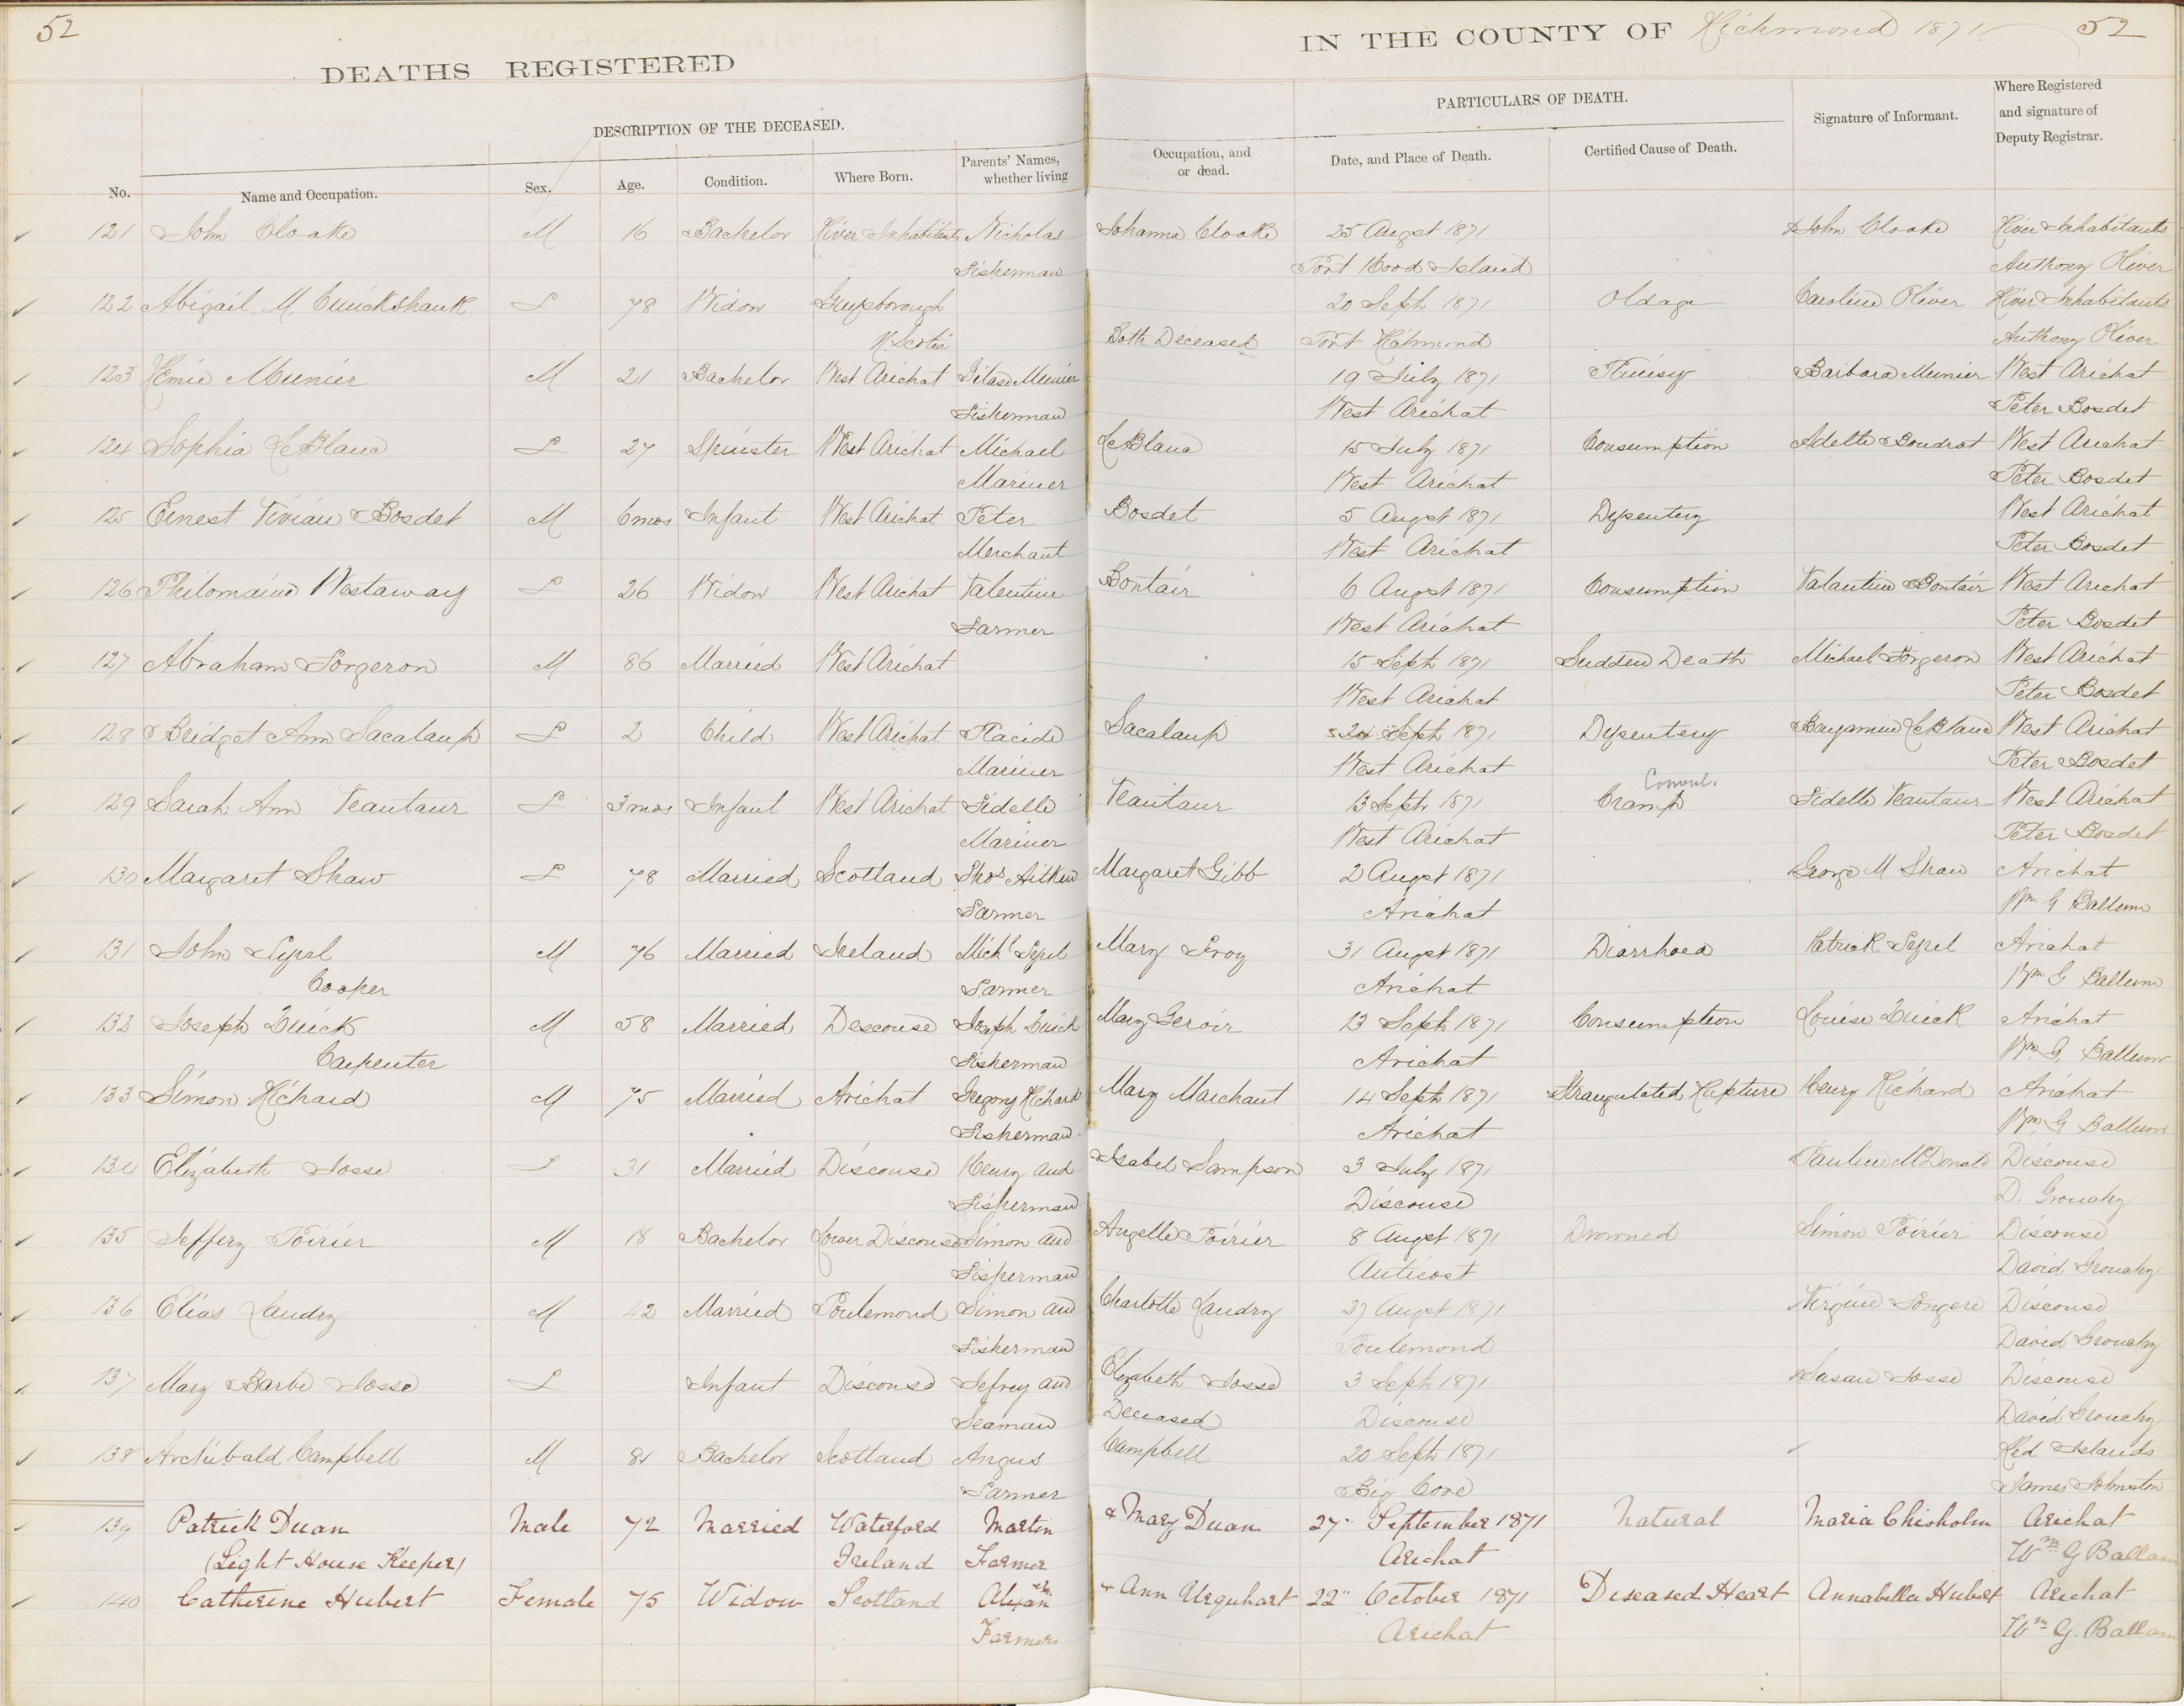 52
DEATHS REGISTERED
IN THE COUNTY OF Richmond 1871
52
DESCRIPTION OF THE DECEASED.
PARTICULARS OF DEATH.
Signature of Informant.
Where Registered and signature of Deputy Registrar.
No. Name and Occupation. Sex. Age. Condition. Where Born. Parents' Names, whether living Occupation, and or dead. Date, and Place of Death. Certified Cause of Death.
121 John Cloake M 16 Bachelor River Inhabitants Nicholas Johanna Cloake 25 Augst 1871 John Cloake River Inhabitants
Fisherman Port Hood Island Anthony Oliver
122 Abigail M. Cruickshank F 78 Widow Guysborough 20 Sept 1871 Oldage Caroline Oliver River Inhabitants
N. Scotia Both Deceased Port Richmond Anthony Oliver
123 Remie Munier M 21 Bachelor West Arichat Munier 19 July 1871 Barbara Munier West Arichat
Fisherman West Arichat Peter Bosdet
124 Sophia LeBlanc F 27 Spinster West Arichat Michael LeBlanc 15 July 1871 Consumption Adelle Boudrot West Arichat
Mariner West Arichat Peter Bosdet
125 Ernest Vivian Bosdet M 6 mos Infant West Arichat Peter Bosdet 5 Augst 1871 Dysentery West Arichat
Merchant West Arichat Peter Bosdet
126 Philomaine Westaway F 26 Widow West Arichat Valentine Bontair 6 Augst 1871 Consumption Valantine Bontair West Arichat
Farmer West Arichat Peter Bosdet
127 Abraham Forgeron M 86 Married West Arichat 15 Sept 1871 Sudden Death Michael Forgeron West Arichat
West Arichat Peter Bosdet
128 Bridget Ann Sacalaup F 2 Child West Arichat Placide Sacalaup Sept 1871 Dysentery Benjamin LeBlanc West Arichat
Mariner West Arichat Peter Bosdet
Convul.
129 Sarah Ann Teautaur F 3 mos Infant West Arichat Fidelle Teautaur 13 Sept 1871 Cramp Fidelle Teautaur West Arichat
Mariner West Arichat Peter Bosdet
130 Margaret Shaw F 78 Married Scotland Thos Aitken Margaret Gibb 2 Augst 1871 George M Shaw Arichat
Farmer Arichat Wm G Ballam
131 John M 76 Married Ireland Michl Mary 31 Augst 1871 Diarrhoea Patrick Arichat
Cooper Farmer Arichat Wm G Ballam
132 Joseph Duick M 58 Married Descouse Joseph Duick Mary Geroir 13 Sept 1871 Consumption Louise Duick Arichat
Carpenter Fisherman Arichat Wm G. Ballam
133 Simon Richard M 75 Married Arichat Gregory Richard Mary Marchant 14 Sept 1871 Strangulated Rupture Henry Richard Arichat
Fisherman Arichat Wm G Ballam
134 Elizabeth Josse F 31 Married Discouse Henry and Isabel Sampson 3 July 1871 Pauline McDonald Discouse
Fisherman Discouse D. Grouchy
135 Jeffery Poirier M 18 Bachelor Lower Discouse Simon and Angelle Poirier 8 Augst 1871 Drowned Simon Poirier Discouse
Fisherman Anticost David Grouchy
136 Elias Landry M 42 Married Poulemond Simon and Charlotte Landry 27 Augst 1871 Virginie Discouse
Fisherman Poulemond David Grouchy
137 Mary Barbe Josse F Infant Discouse Jefrey and Elizabeth Josse 3 Sept 1871 Susan Josse Discouse
Seaman Deceased Discouse David Grouchy
138 Archibald Campbell M 81 Bachelor Scotland Angus Campbell 20 Sept 1871 Red Islands
Farmer Big Cove James Johnston
139 Patrick Duan Male 72 Married Waterford Martin & Mary Duan 27" September 1871 Natural Maria Chisholm Arichat
(Light House Keeper) Ireland Farmer Arichat Wm G Ballam
140 Catherine Hubert Female 75 Widow Scotland & Ann Urquhart 22" October 1871 Diseased Heart Annabella Hubert Arichat
Farmer Arichat Wm G. Ballam